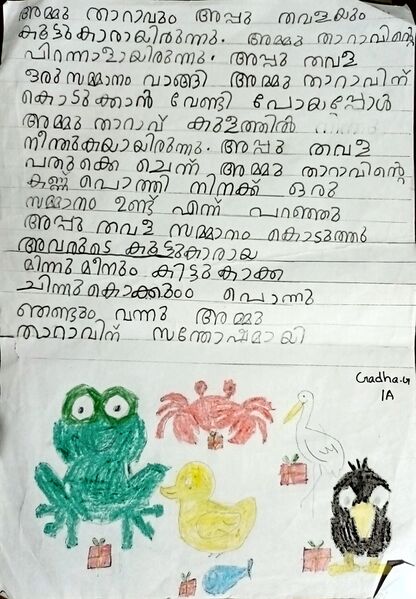 അമ്മു താറാവും അപ്പു തവളയും
കൂട്ടുകാരായിരുന്നു. അമ്മു താറാവിന്റെ
പിറന്നാളായിരുന്നു. അപ്പു തവള
ഒരു സമ്മാനം വാങ്ങി അമ്മു താറാവിന്
കൊടുക്കാൻ വേണ്ടി പോയപ്പോൾ
അമ്മു താറാവ് കുളത്തിൽ
നീന്തുകയായിരുന്നു. അപ്പു തവള
പതുക്കെ ചെന്ന് അമ്മു താറാവിന്റെ
കണ്ണ് പൊത്തി നിനക്ക് ഒരു
സമ്മാനം ഉണ്ട് എന്ന് പറഞ്ഞു
അപ്പു തവള സമ്മാനം കൊടുത്തു
അവരുടെ കൂട്ടുകാരായ
മിന്നു മീനും കിട്ടു കാക്ക
ചിന്നു കൊക്കും പൊന്നു
ഞണ്ടും വന്നു അമ്മു
താറാവിന് സന്തോഷമായി
1A